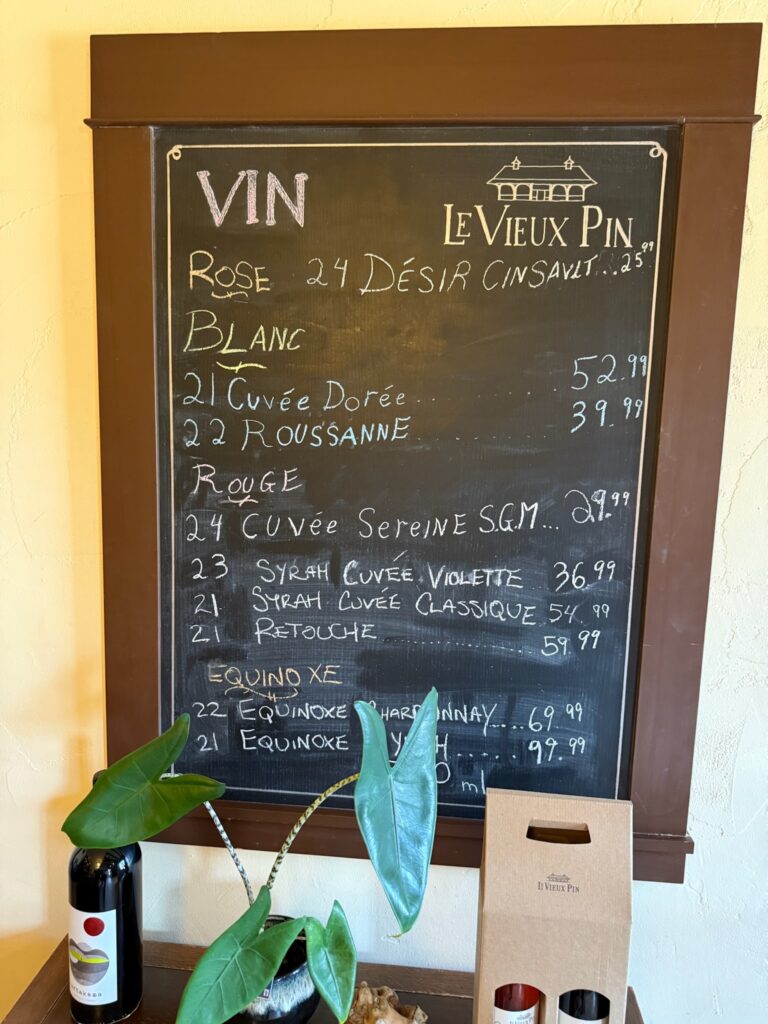 VIN
LE VIEUX PIN
ROSE 24 DÉSIR CINSAULT...25.99
BLANC
21 Cuvée Dorée ........ 52.99
22 ROUSSANNE ........ 39.99
ROUGE
24 CUVée SereiNE S.G.M... 29.99
23 SYRAH CUVÉE VIOLETTE 36.99
21 SYRAH CUVÉE CLASSIQUE 54.99
21 RETOUCHE ........ 59.99
EQUINOXE
22 EQUINOXE CHARDONNAY.... 69.99
21 EQUINOXE ..... 99.99
ml
LE VIEUX PIN